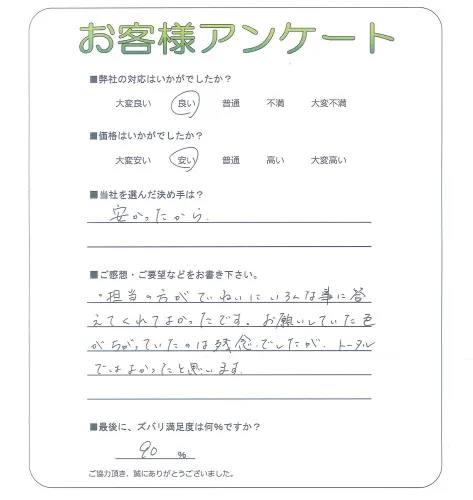 お客様アンケート
■弊社の対応はいかがでしたか？
大変良い 良い 普通 不満 大変不満
■価格はいかがでしたか？
大変安い 安い 普通 高い 大変高い
■当社を選んだ決め手は？
安かったから.
■ご感想・ご要望などをお書き下さい。
・担当の方がていねいにいろんな事に答
えてくれてよかったです。お願いしていた色
がちがっていたのは残念.でしたが、トータル
ではよかったと思います.
■最後に、ズバリ満足度は何％ですか？
90 ％
ご協力頂き、誠にありがとうございました。